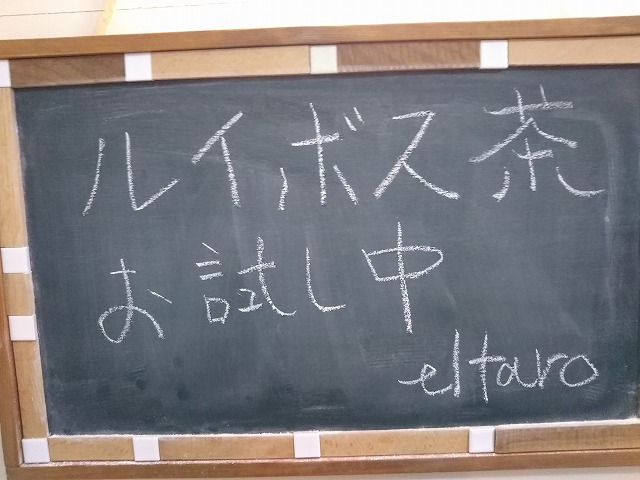 ルイボス茶
お試し中
eltaro